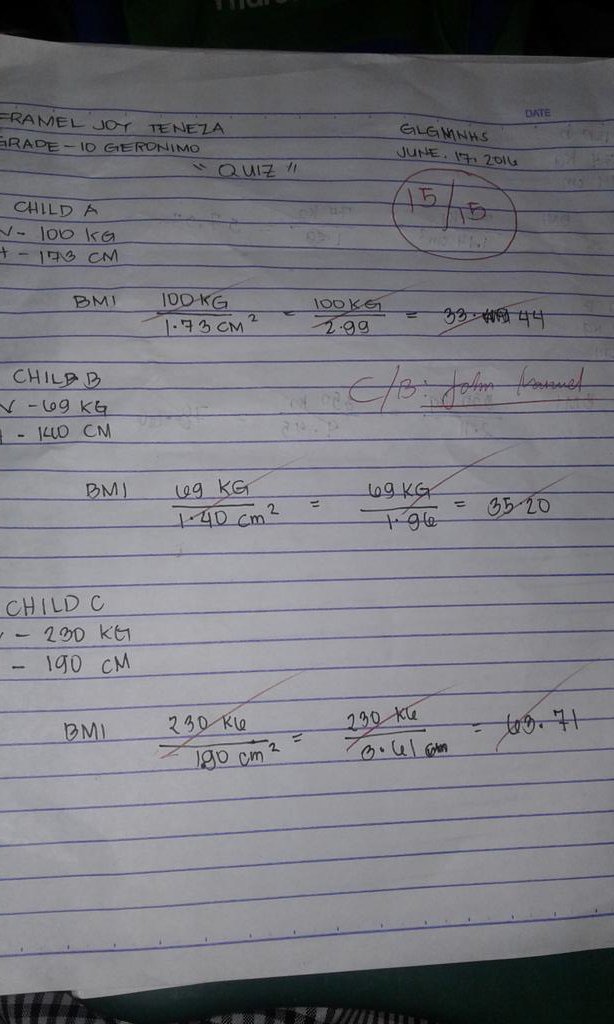 DATE
FRAMEL JOY TENEZA GLGMNHS
GRADE-10 GERONIMO JUNE. 17, 2016
" QUIZ "
15/15
CHILD A
W- 100 KG
H - 173 CM
BMI 100 KG / 1.73 CM² = 100 KG / 2.99 = 33. 44
CHILD B
C/B: John
W - 69 KG
H - 140 CM
BMI 69 KG / 1.40 cm² = 69 KG / 1.96 = 35.20
CHILD C
- 230 KG
- 190 CM
BMI 230 KG / 190 cm² = 230 KG / 3.61 cm = 63.71